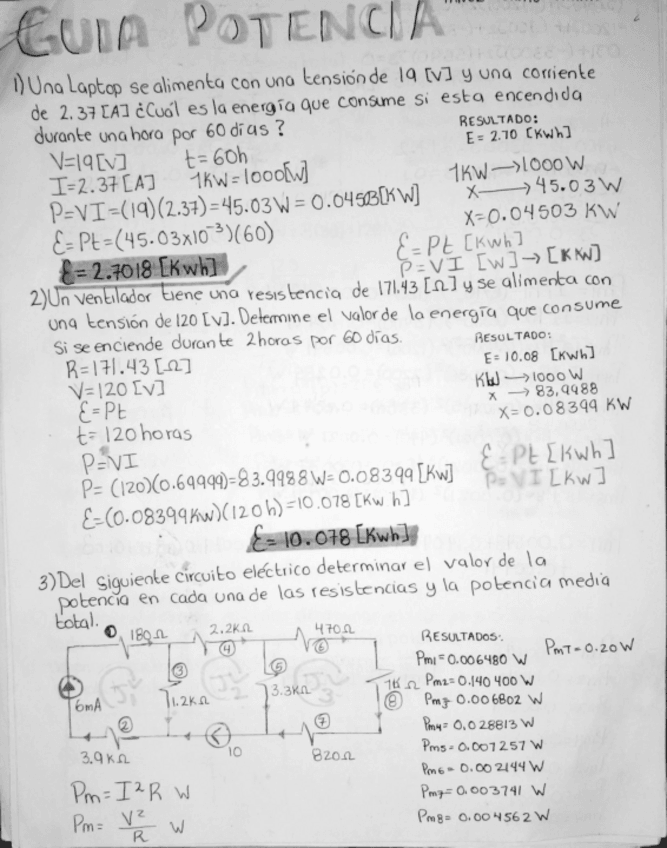 GUIA POTENCIA
1) Una Laptop se alimenta con una tensión de 19 [V] y una corriente
de 2.37 [A] ¿Cuál es la energía que consume si esta encendida
durante una hora por 60 días?
RESULTADO:
E= 2.70 [KWh]
V=19[V] t= 60h
I=2.37[A] 1KW=1000[W]
P=VI=(19)(2.37)=45.03W= 0.04503[KW]
Ɛ=Pt=(45.03x10⁻³)(60)
Ɛ= 2.7018 [Kwh]
1KW→1000W
X→45.03W
X=0.04503 KW
Ɛ=Pt [Kwh]
P=VI [W]→[KW]
2) Un ventilador tiene una resistencia de 171.43 [Ω] y se alimenta con
una tensión de 120 [V]. Determine el valor de la energía que consume
Si se enciende durante 2 horas por 60 días.
RESULTADO:
E= 10.08 [KWh]
R=171.43[Ω]
V=120 [V]
Ɛ=Pt
t= 120 horas
P=VI
P= (120)(0.69999)=83.9988W= 0.08399 [Kw]
Ɛ=(0.08399Kw)(120h)=10.078[Kwh]
Ɛ= 10.078 [Kwh]
KW→1000W
x→83.9988
X=0.08399 KW
Ɛ=Pt [Kwh]
P=VI [Kw]
3) Del siguiente circuito eléctrico determinar el valor de la
potencia en cada una de las resistencias y la potencia media
total.
① 180Ω 2.2KΩ 470Ω
④ ⑥
③ ⑤
J1 J2 J3
6mA 1.2KΩ 3.3KΩ 1KΩ
⑧
② ⑦
3.9KΩ 10 820Ω
Pm=I²R W
Pm= V²/R W
RESULTADOS:
Pm1=0.006480 W
PmT=0.20W
Pm2=0.140400 W
Pm3=0.006802 W
Pm4=0.028813 W
Pm5=0.007257 W
Pm6=0.002144 W
Pm7=0.003741 W
Pm8=0.004562 W